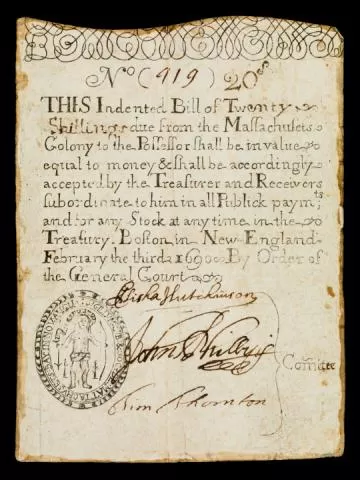 No (919) 20s
THIS Indented Bill of Twenty
Shillings due from the Massachusets
Colony to the Possessor shall be in value
equal to money & shall be accordingly
accepted by the Treasurer and Receivers
subordinate to him in all Publick paymts
and for any Stock at any time in the
Treasury. Boston in New-England
February the third 1690. By Order of
the General Court
Elisha Hutchinson
John Phillips
Tim Thornton
Comittee